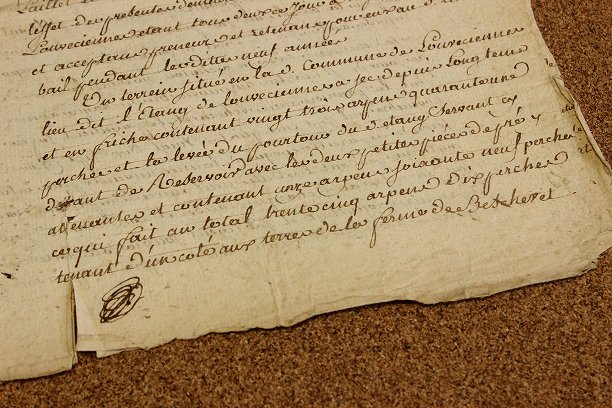 l'effet des presentes demeurant
Louveciennes etant tous deux ce jour a
et acceptans preneur et retenans pour
bail pendant les dittes neuf années
Un terrein situé en la d. Commune de Louveciennes
lieu dit l'Etang de Louveciennes a sec depuis Longtems
et en friche contenant vingt trois arpens quarante une
perches et la levée du pourtour du d. etang Servant cy
devant de Reservoir avec les deux petites pièces de pré y
attenantes et contenant onze arpens soixante neuf perches
ce qui fait au total trente cinq arpens Dix perches
tenant d'un coté aux terres de la ferme de Bechevet